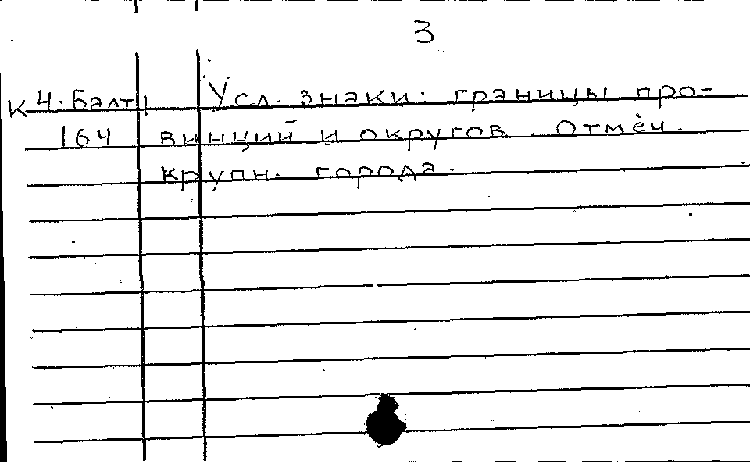 3
К 4. Балт. Усл. знаки: границы про-
164 винций и округов. Отмеч.
крупн. города.